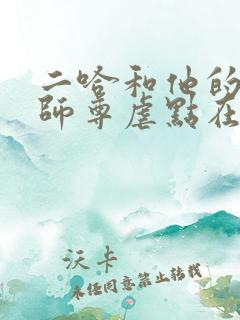 二哈和他的
師尊虐點在
沃卡
未经同意禁止转载